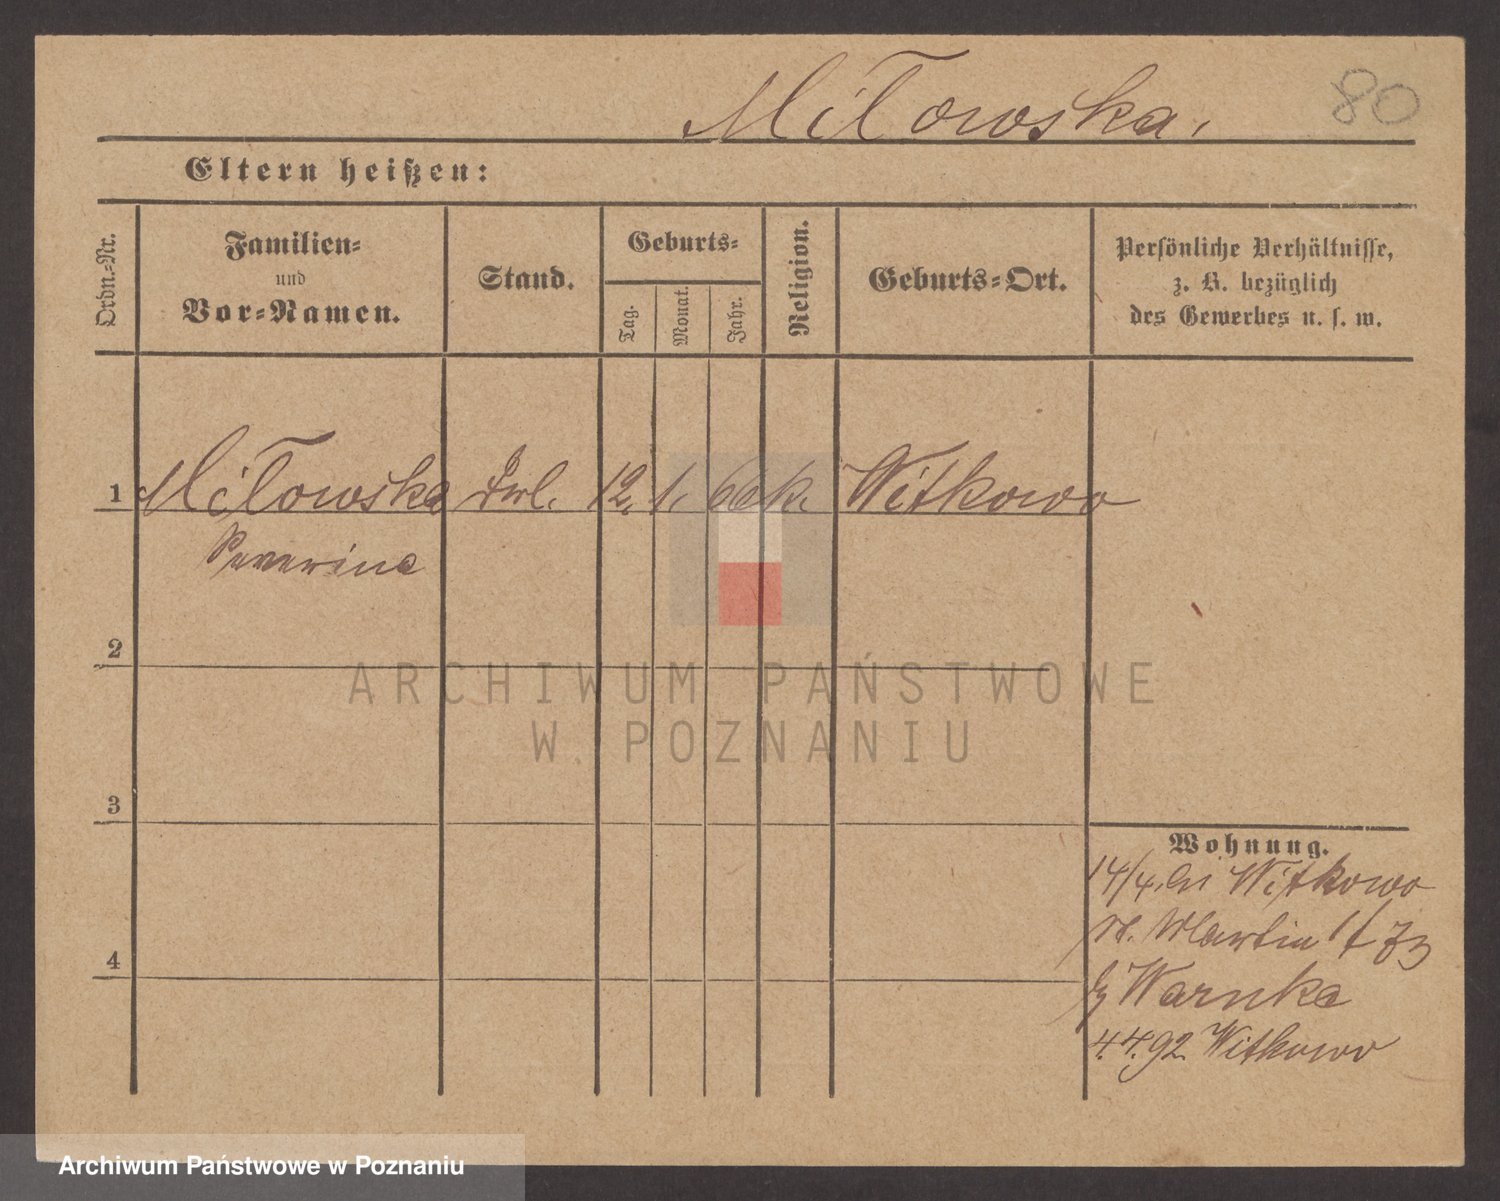 Miłowska,
80
Eltern heißen:
Ordn.-Nr.
Familien-
und
Vor-Namen.
Stand.
Geburts-
Tag.
Monat.
Jahr.
Religion.
Geburts-Ort.
Persönliche Verhältnisse,
z. B. bezüglich
des Gewerbes u. s. w.
1 Miłowska Frl. 12. 1. 66 k. Witkowo
Severina
2
3
4
Wohnung.
14/4. Witkowo
St. Martin
Warnke
4.4.92 Witkowo
ARCHIWUM PAŃSTWOWE
W POZNANIU
Archiwum Państwowe w Poznaniu